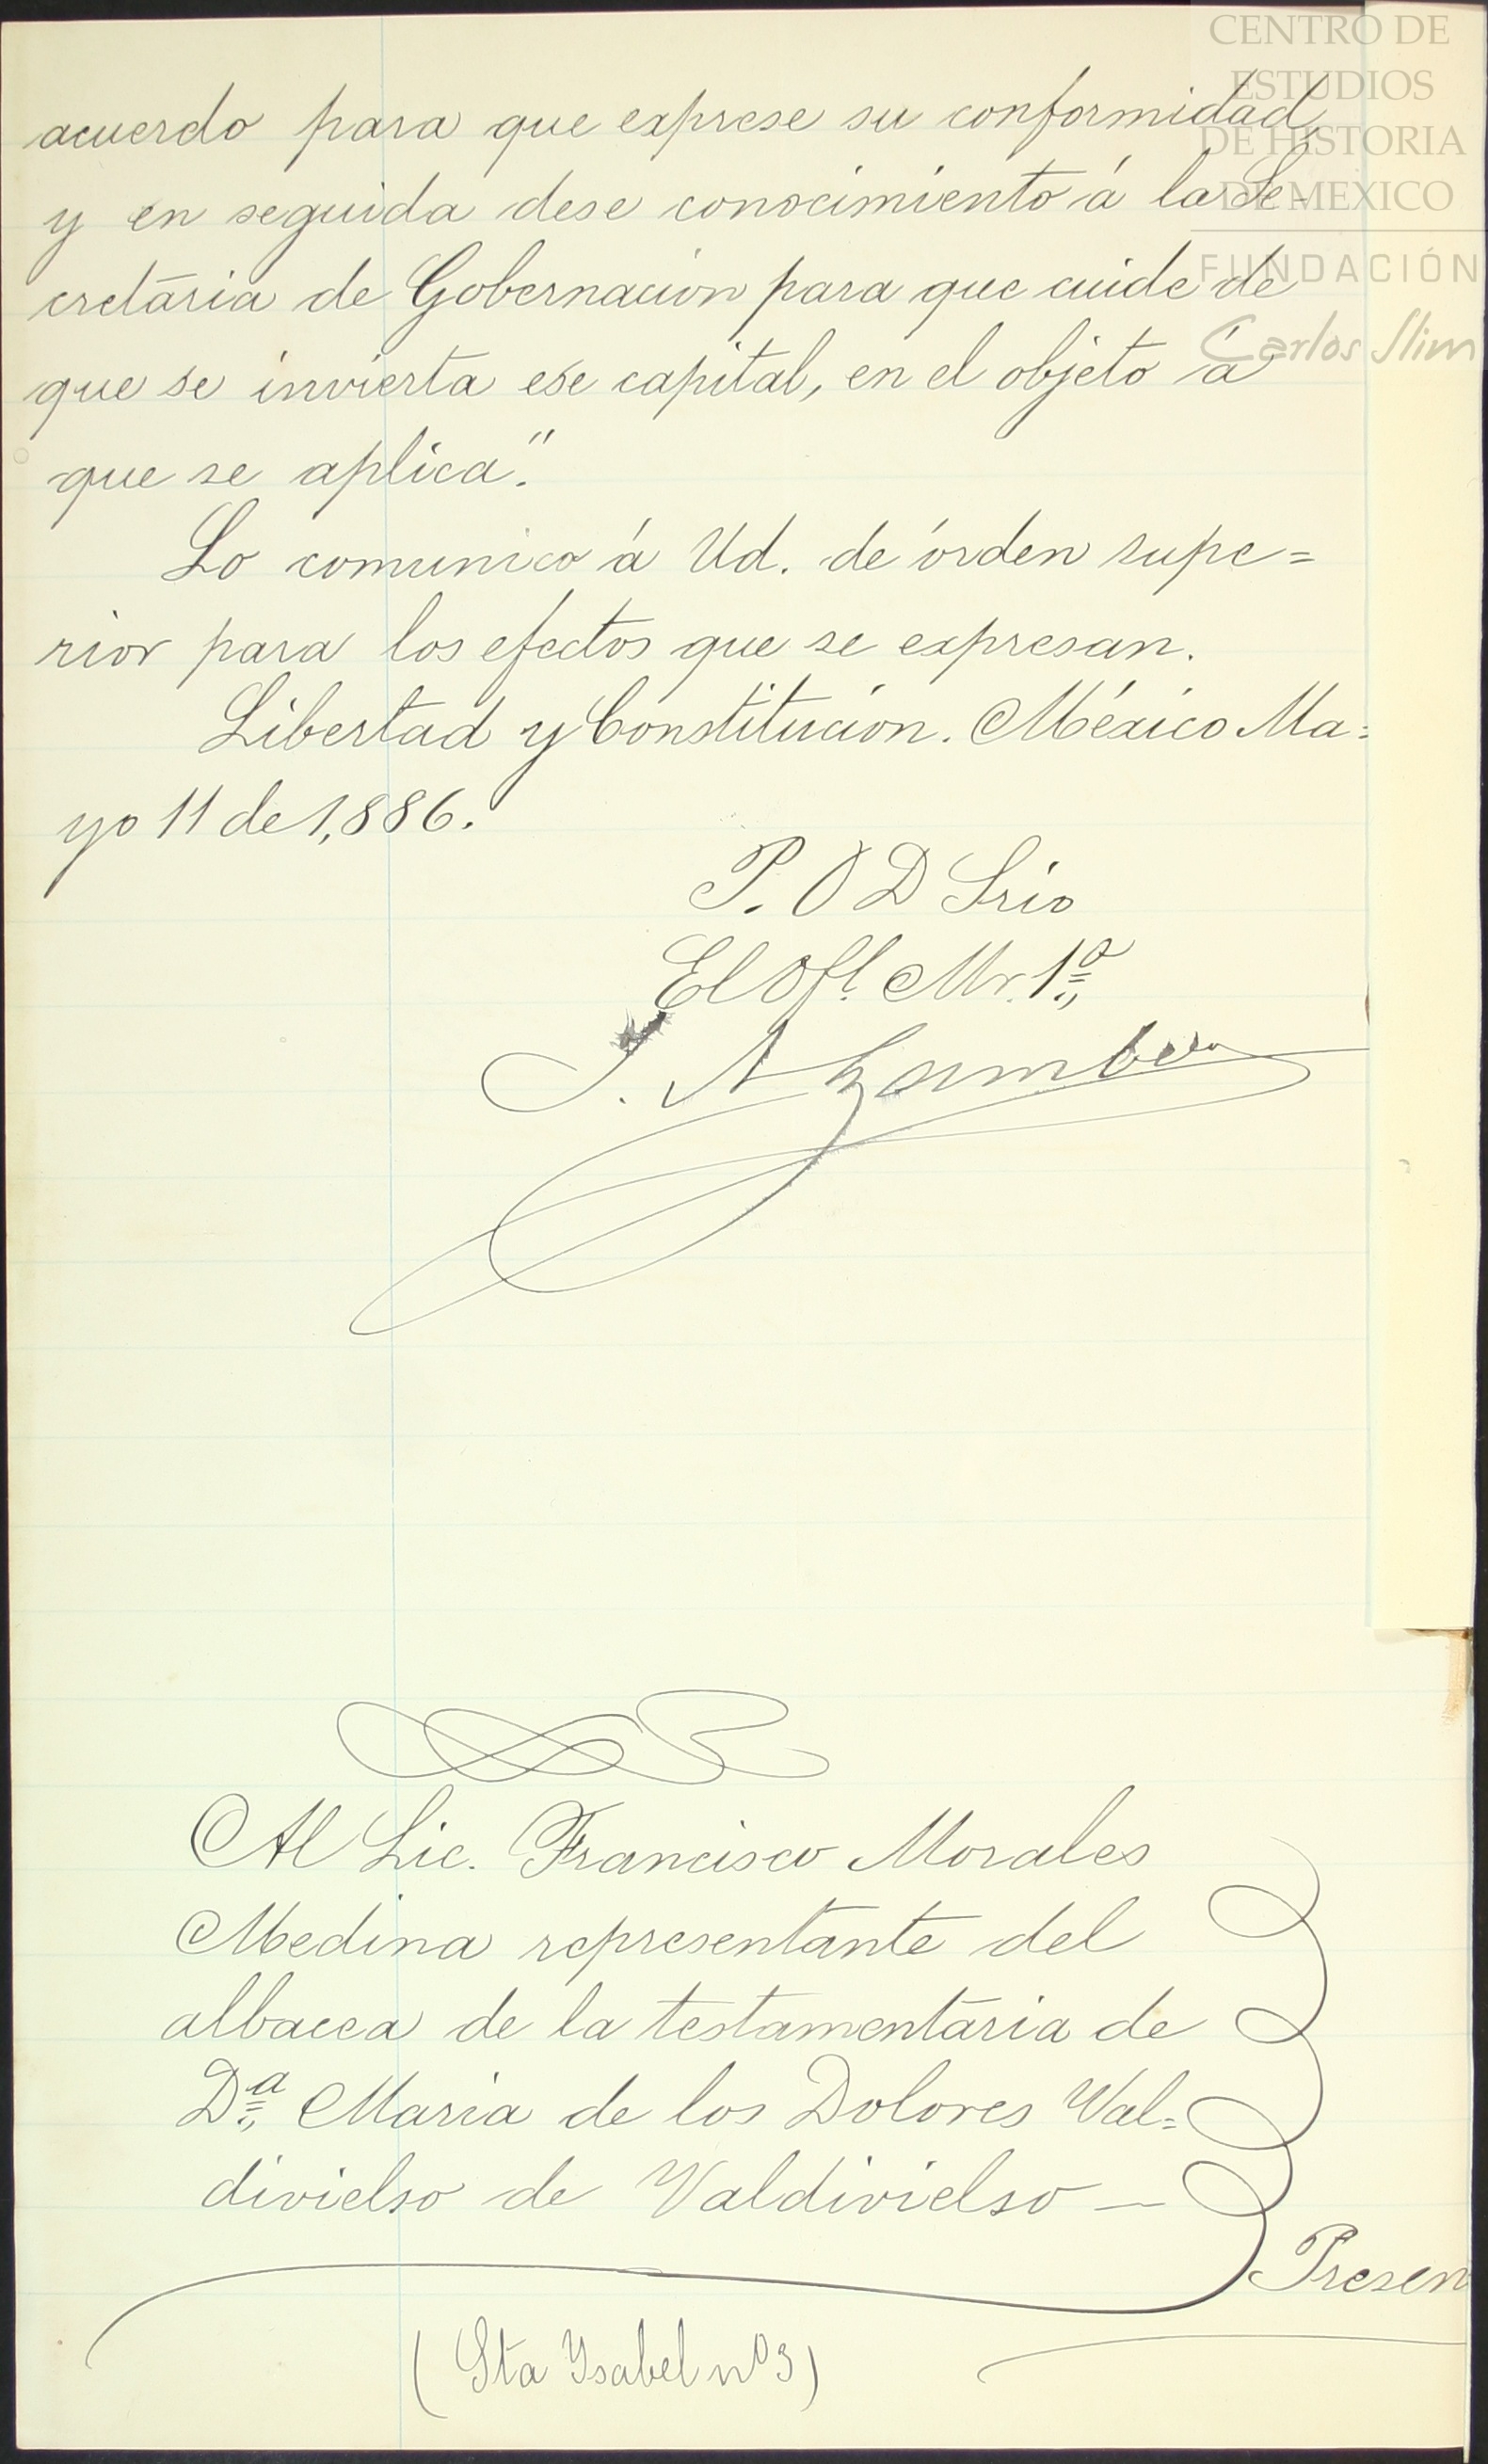 CENTRO DE
ESTUDIOS
DE HISTORIA
DE MEXICO
FUNDACIÓN
Carlos Slim
acuerdo para que exprese su conformidad,
y en seguida dese conocimiento á la Se-
cretaria de Gobernacion para que cuide de
que se invierta ese capital, en el objeto á
que se aplica".
Lo comunico á Ud. de órden supe=
rior para los efectos que se expresan.
Libertad y Constitucion. México Ma=
yo 11 de 1,886.
P. O D Srio
El Ofl. Mr. 1º
J. A Gamboa
Al Lic. Francisco Morales
Medina representante del
albacea de la testamentaria de
Dª Maria de los Dolores Val=
divielso de Valdivielso —
Presen
(Sta Ysabel nº 3)